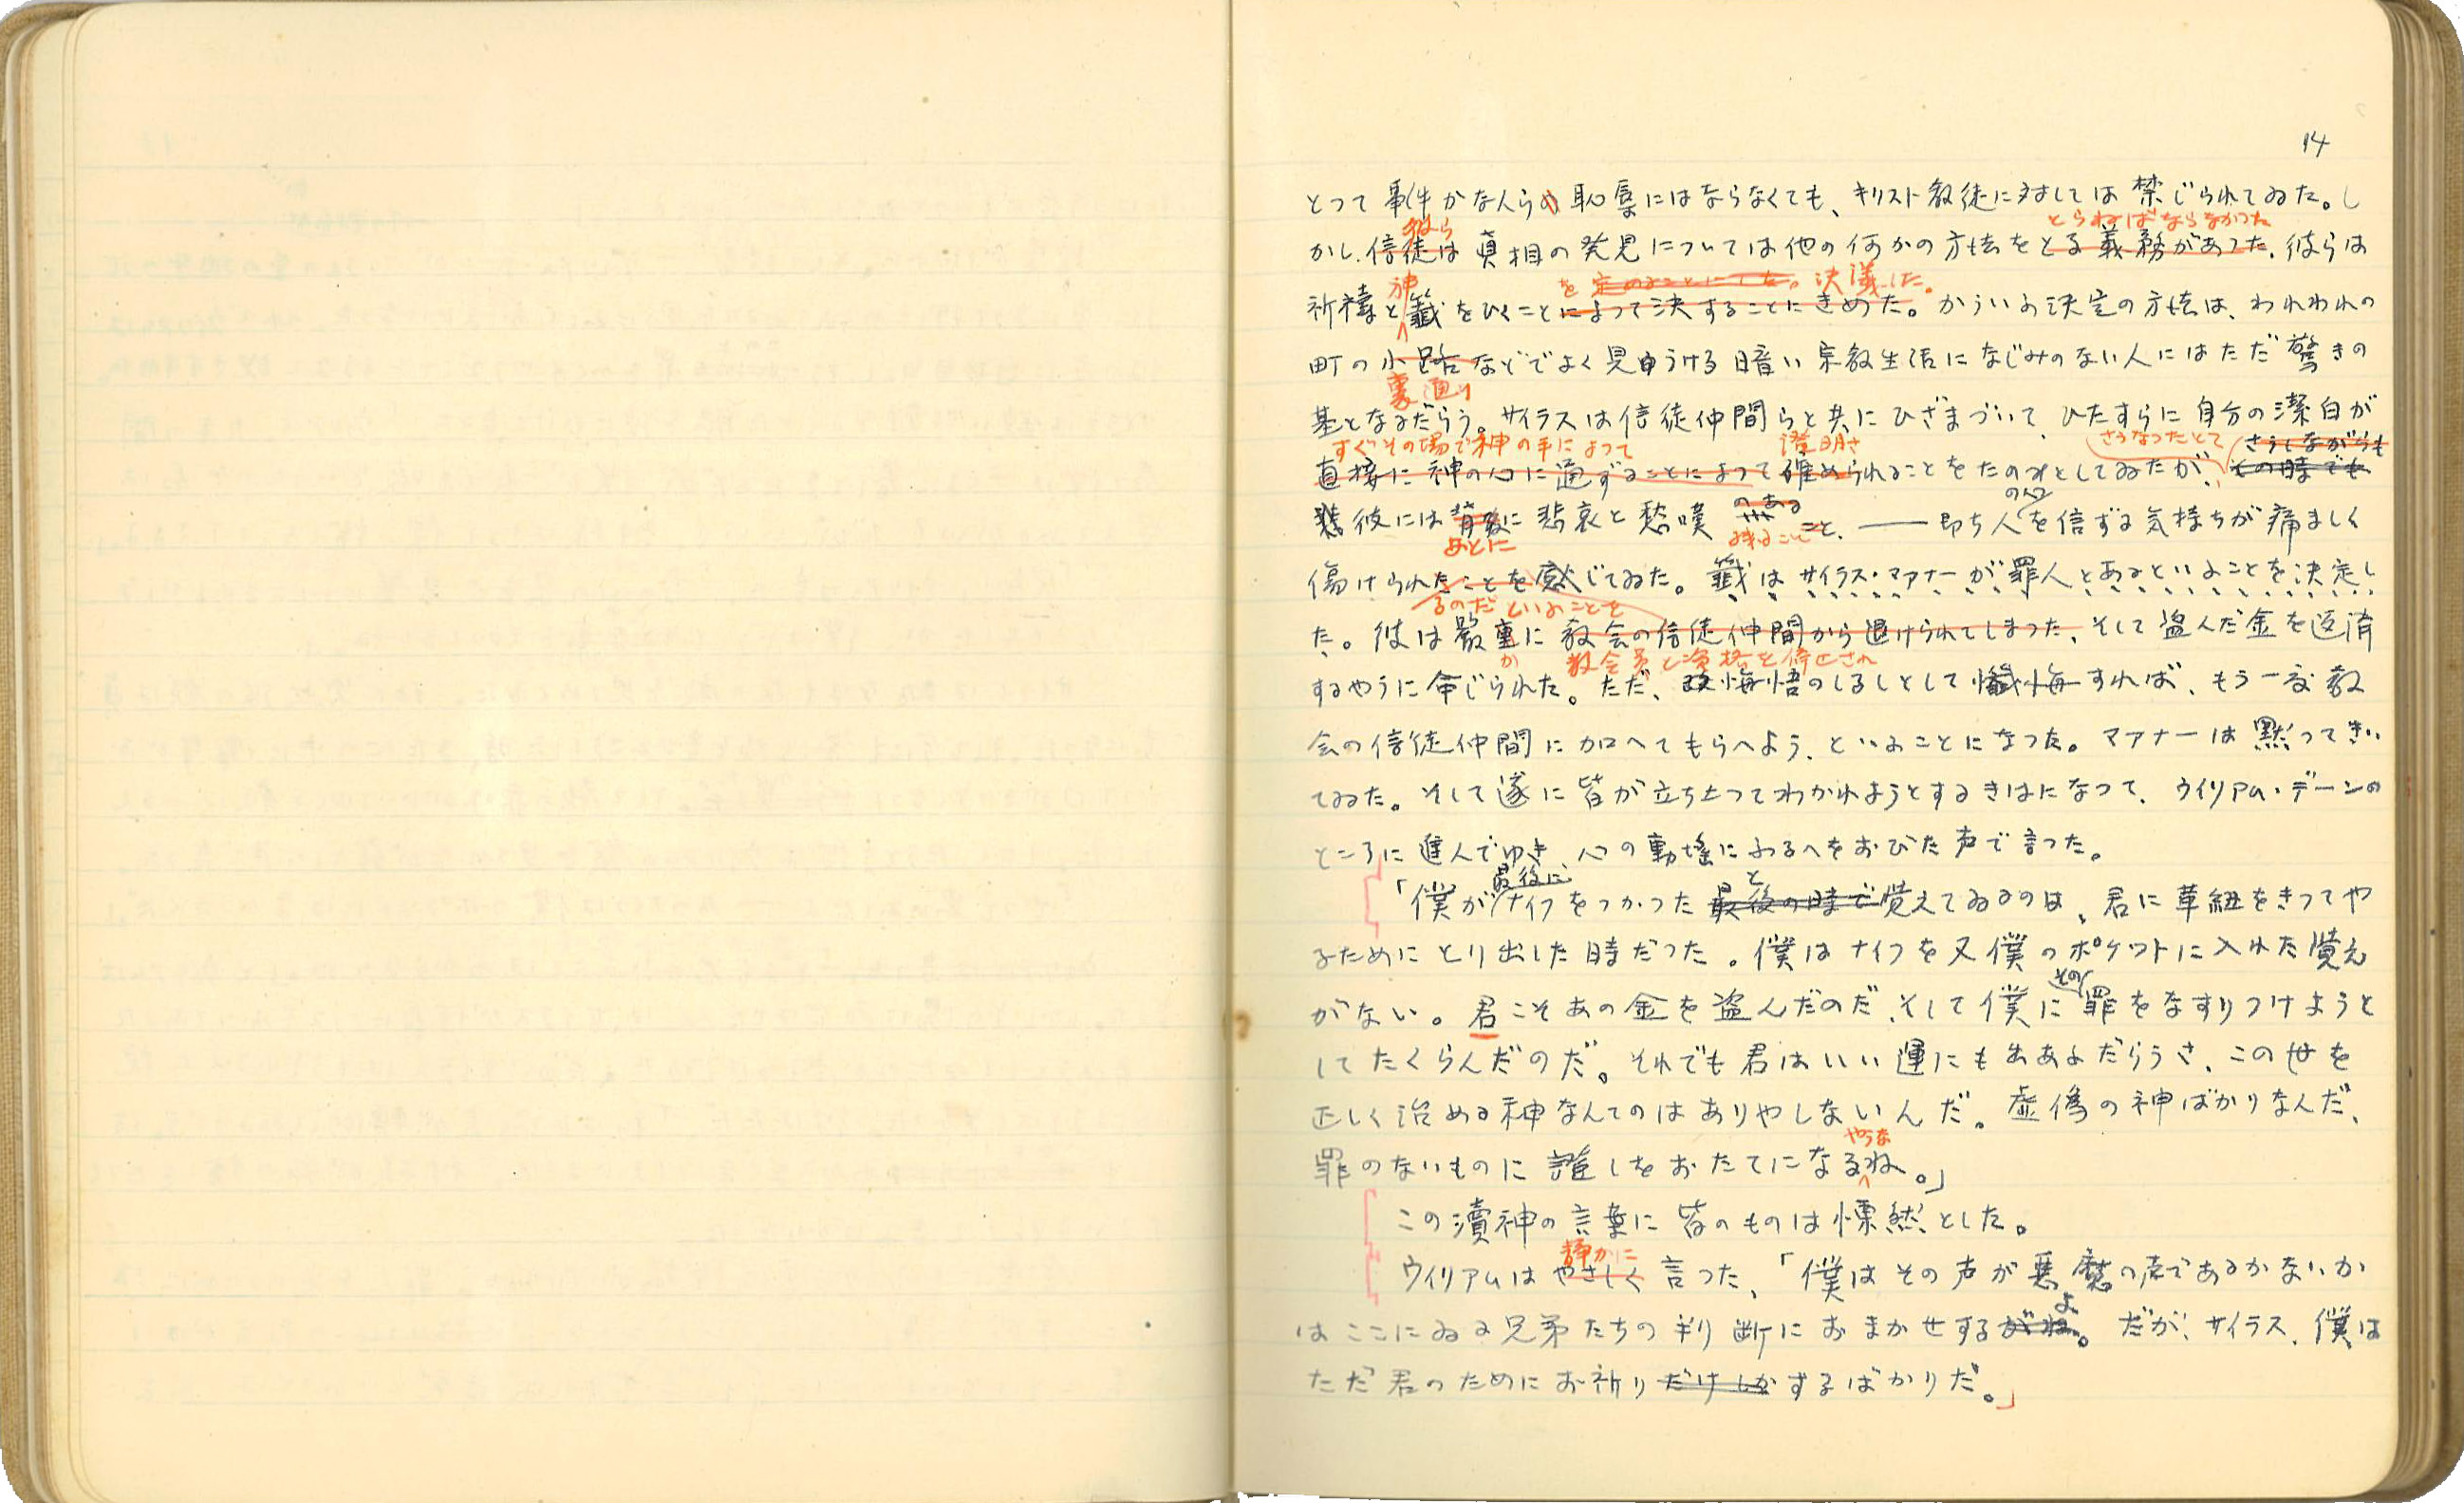 14
とつて事件がなんらの恥辱にはならなくても、キリスト教徒に対しては禁じられてゐた。し
彼ら とらねばならなかつた
かし、信徒は眞相の発見については他の何かの方法をとる義務があつた。彼らは
神 を定めることにした。決議した。
祈祷と籤をひくことによつて決することにきめた。かういふ決定の方法は、われわれの
町の小路などでよく見うける暗い宗教生活になじみのない人にはただ驚きの
裏通り
基となるだらう。サイラスは信徒仲間らと共にひざまづいて、ひたすらに自分の潔白が
すぐその場で神の手によつて 證明さ さうなつたとて さうしながらも
直接に神の心に通ずることによつて確められることをたのみとしてゐたが、その時でも
の心 のある
彼には背後に悲哀と愁嘆 こと、――即ち人を信ずる気持ちが痛ましく
あとに
傷けられたことを感じてゐた。籤はサイラス・マアナーが罪人とあるといふことを決定し
るのだといふことを
た。彼は嚴重に教会の信徒仲間から退けられてしまつた、そして盗んだ金を返済
か 教会員と資格を停止され
するやうに命じられた。ただ、改悔悟のしるしとして懺悔すれば、もう一度教
会の信徒仲間に加へてもらへよう、といふことになつた。マアナーは黙つてきい
てゐた。そして遂に皆が立ち上つてわかれようとするきはになつて、ウイリアム・デーンの
ところに進んでゆき、心の動揺にふるへをおびた声で言つた。
最後に と
「僕がナイフをつかつた最後の時で覚えてゐるのは、君に革紐をきつてや
るためにとり出した時だつた。僕はナイフを又僕のポケツトに入れた覚え
その
がない。君こそあの金を盗んだのだ、そして僕に罪をなすりつけようと
してたくらんだのだ。それでも君はいい運にも出あふだらうさ、この世を
正しく治める神なんてのはありやしないんだ。虚偽の神ばかりなんだ、
やうな
罪のないものに證しをおたてになるね。」
この瀆神の言葉に皆のものは慄然とした。
静かに
ウイリアムはやさしく言つた、「僕はその声が悪魔の声であるかないか
よ
はここにゐる兄弟たちの判断におまかせするがね。だが、サイラス、僕は
ただ君のためにお祈りだけしかするばかりだ。」